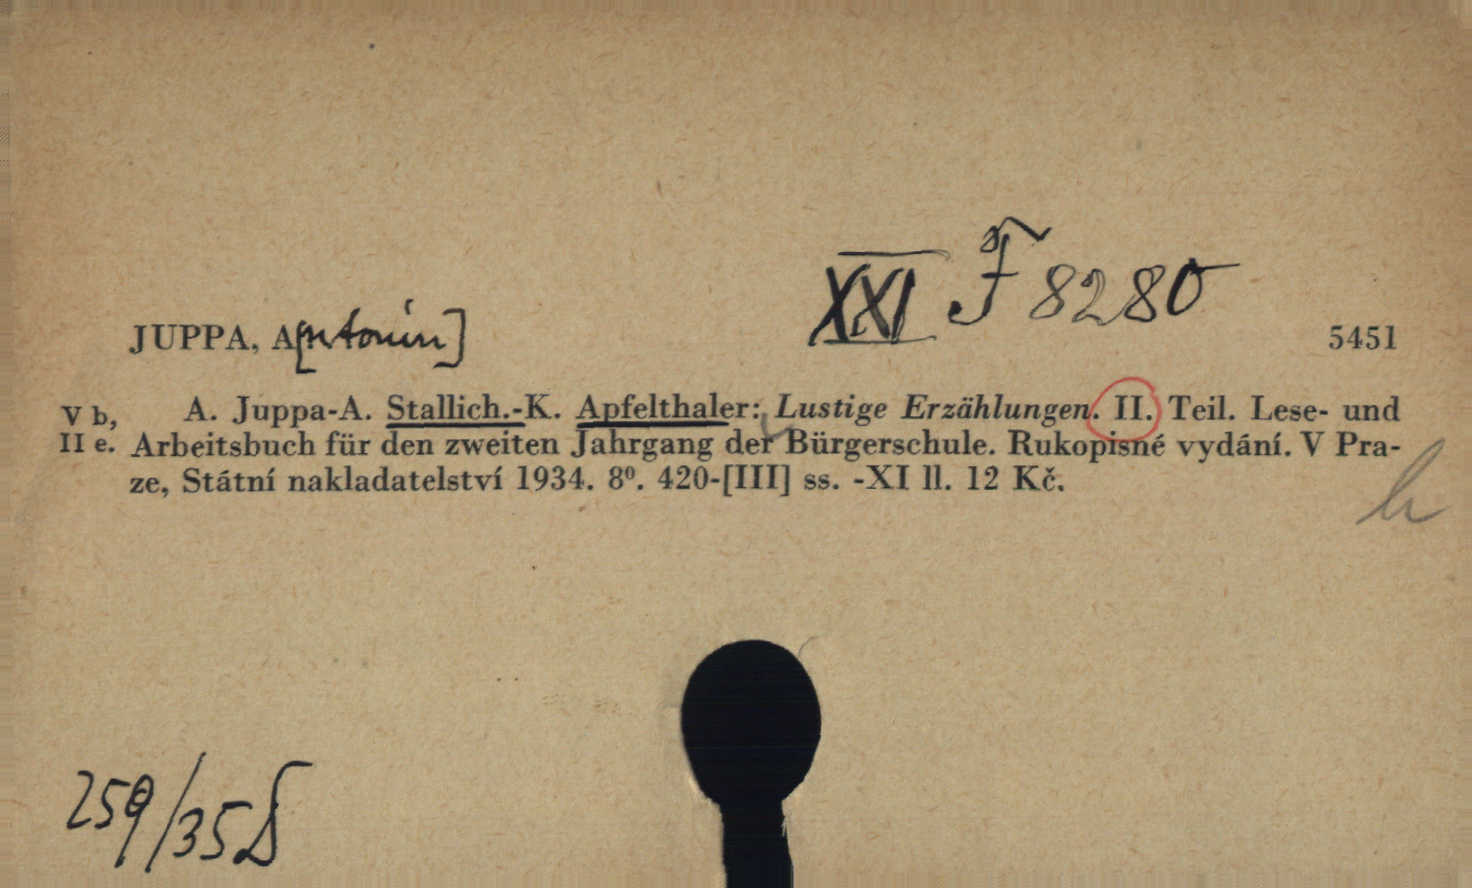 XXI F 8280
JUPPA, A[ntonín] 5451
V b, A. Juppa-A. Stallich.-K. Apfelthaler: Lustige Erzählungen. II. Teil. Lese- und
II e. Arbeitsbuch für den zweiten Jahrgang der Bürgerschule. Rukopisné vydání. V Pra-
ze, Státní nakladatelství 1934. 8⁰. 420-[III] ss. -XI ll. 12 Kč.
259/35